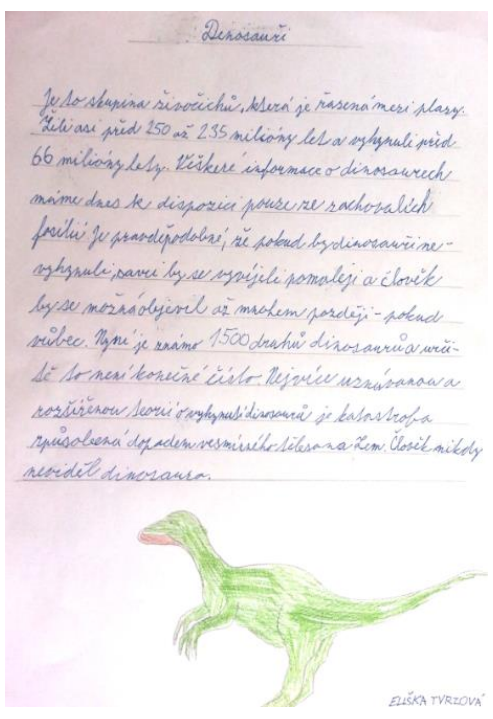 Dinosauři
Je to skupina živočichů, která je řasená mezi plazy.
Žili asi před 250 až 235 milióny let a vyhynuli před
66 milióny lety. Veškeré informace o dinosaurech
máme dnes k dispozici pouze ze zachovalých
fosilií. Je pravděpodobné, že pokud by dinosauři ne-
vyhynuli, savci by se vyvíjeli pomaleji a člověk
by se možná objevil až mnohem později - pokud
vůbec. Nyní je známo 1500 druhů dinosaurů a urči-
tě to není konečné číslo. Nejvíce uznávanou a
rozšířenou teorií o vyhynutí dinosaurů je katastrofa
způsobená dopadem vesmírného tělesa na Zem. Člověk nikdy
neviděl dinosaura.
ELIŠKA TVRZOVÁ